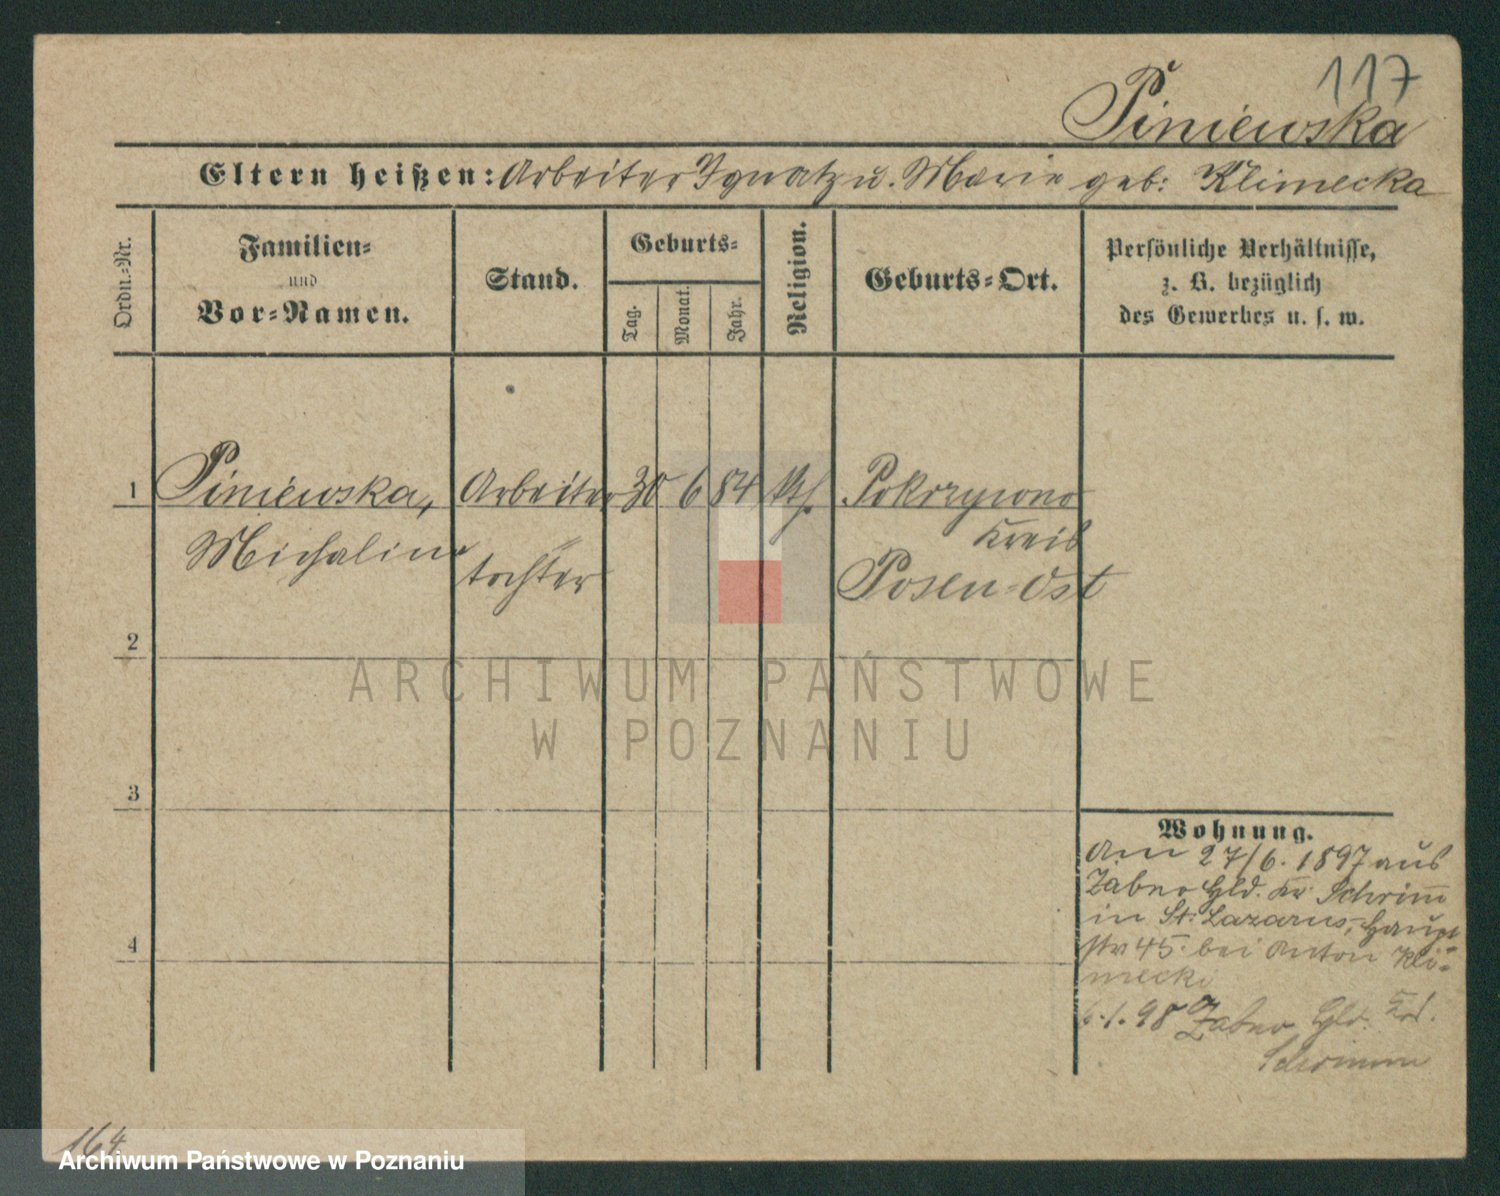 117
Piniewska
Eltern heißen: Arbeiter Ignatz u. Marie geb: Klimecka
Ordn.-Nr.
Familien-
und
Vor-Namen.
Stand.
Geburts-
Tag.
Monat.
Jahr.
Religion.
Geburts-Ort.
Persönliche Verhältnisse,
z. B. bezüglich
des Gewerbes u. s. w.
1 Piniewska, Arbeiter 30 6 84 kth. Pokrzywno
Michaline tochter Kreis
Posen-Ost
2
3
4
Wohnung.
Am 27/6. 1897 aus
Zabno Gld. Kr. Schrimm
in St: Lazarus, Haupt-
str 45. bei Anton Kli-
mecki
1. 98 Zabno Gld. Krs.
Schrimm
164
ARCHIWUM PAŃSTWOWE
W POZNANIU
Archiwum Państwowe w Poznaniu